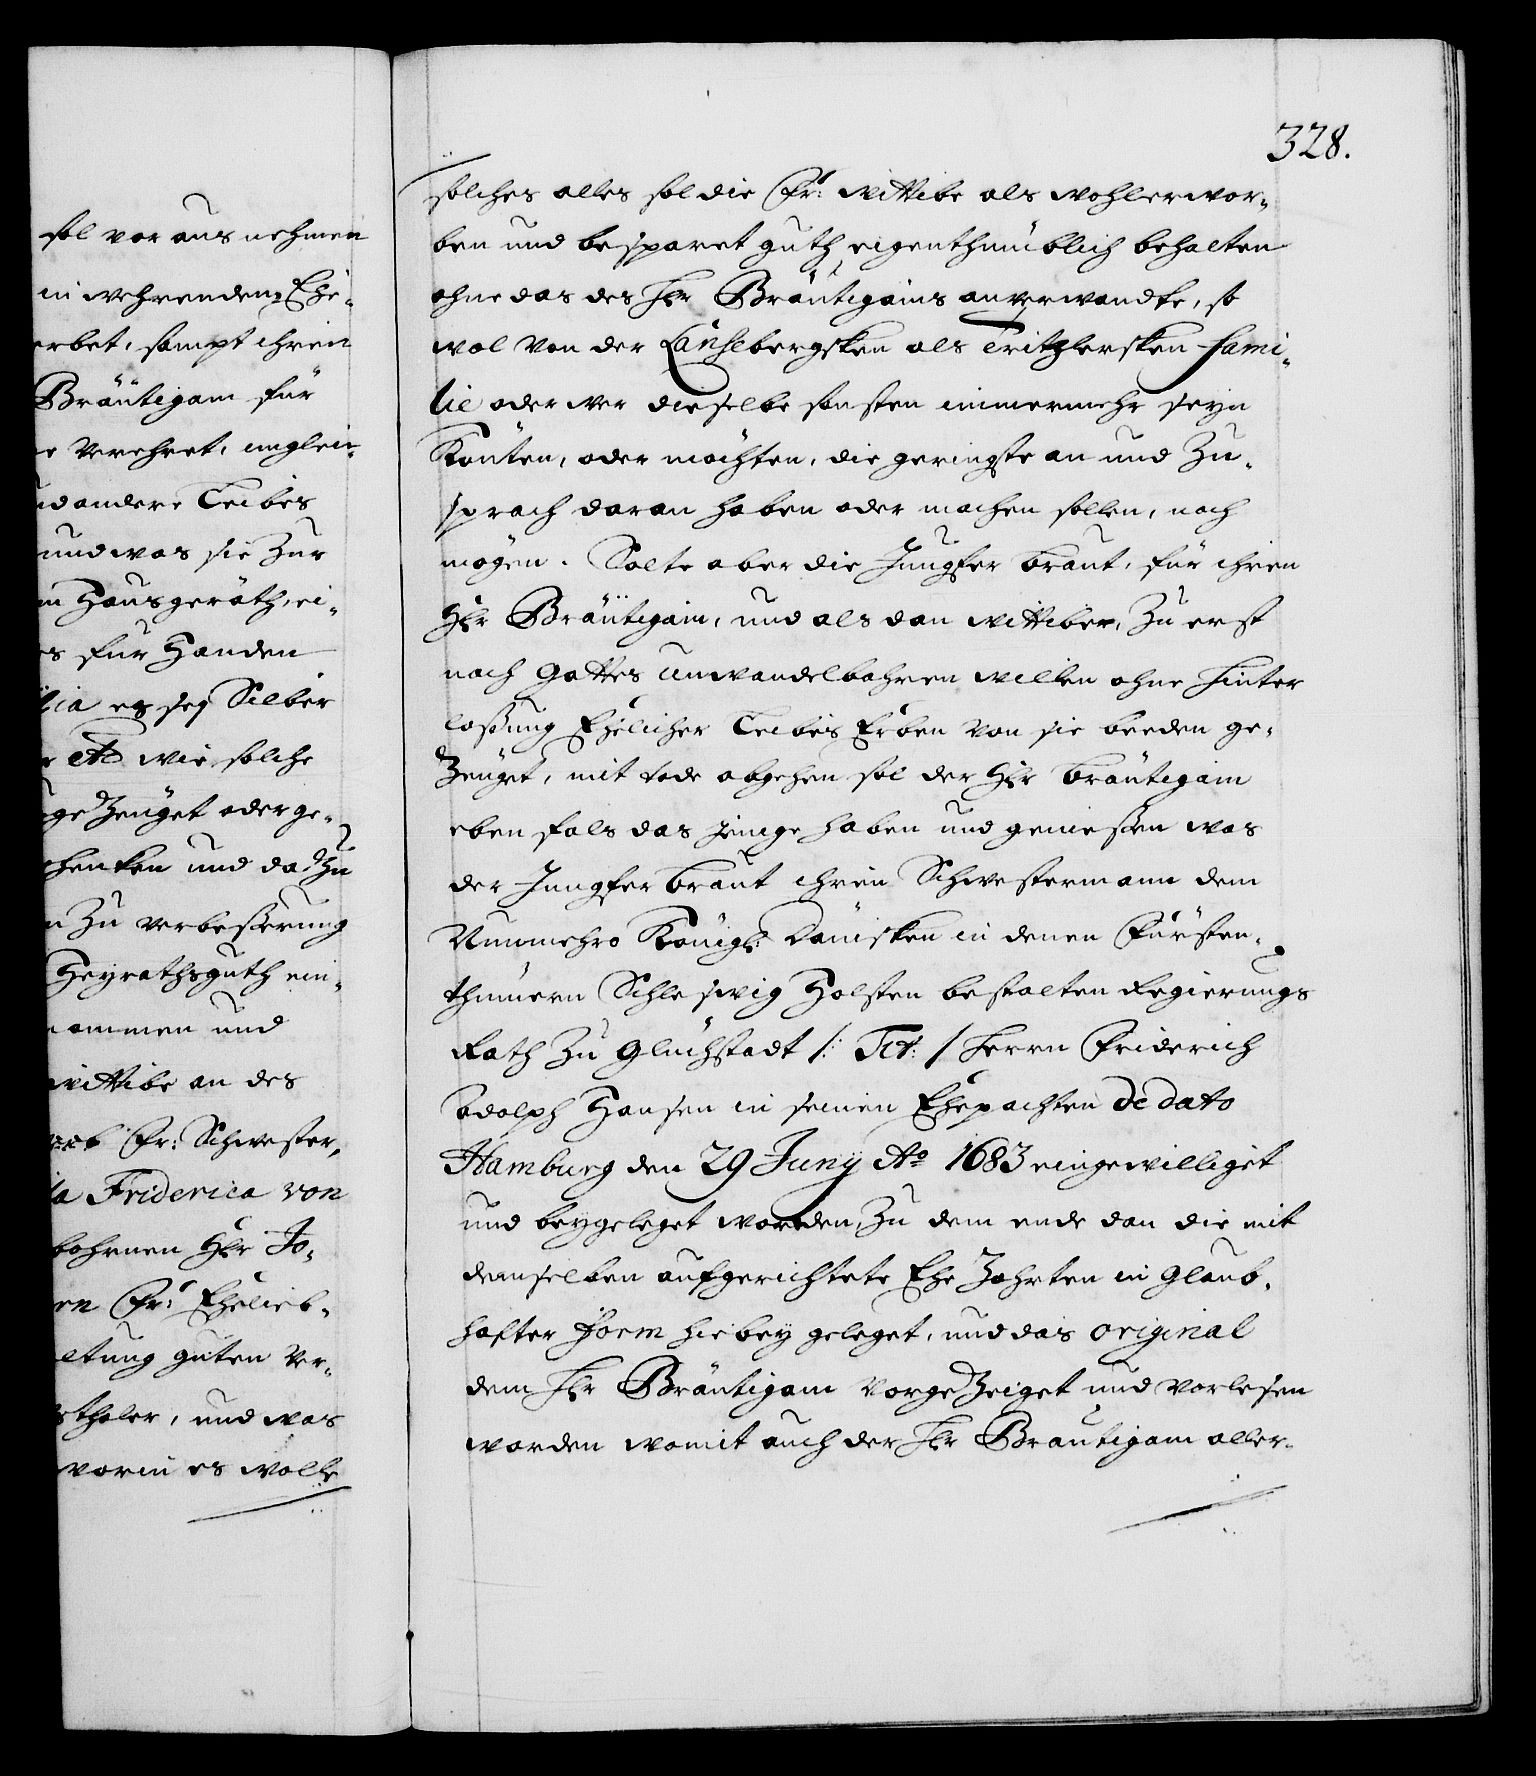 sol vor aus nehmen
in wehrender Ehe-
erbet, sampt ihren
Bräutigam für
e verehret, imglei-
nd andere Leibes
und was sie zur
in Hausgeräth, ei-
es für Handen
es sey Silber
etc wie solche
ge Zeuget oder ge-
henken und da Zu
n Zu verbeßerung
Heyrathsguth ein-
kommen und
wittibe an des
Fr: Schwester,
ia Friderica von
bohrnen Hhr Jo-
en Fr: Ehelieb-
ltung guten Ver-
sthaler, und was
worin es wolle
328.
solches alles sol die Fr: wittibe als wohlerwor-
ben und besparet guth eigenthümblich behalten
ohne das des Hhr Bräutigams anverwandte, so
wol von der als Fritzlersken fami-
lie oder wer dieselbe sonsten immermehr seyn
Könten, oder möchten, die geringste an und Zu-
sprach daran haben oder machen sollen, noch
mögen. Solte aber die Jungfer braut, für ihren
Hhr Bräutigam, und als dan wittiber, Zu erst
nach Gottes unwandelbahren willen ohne hinter
laßung Ehelicher Leibes Erben von sie beeden ge-
Zeuget, mit tode abgehen sol der Hhr bräutigam
eben fals das jenige haben und genießen was
der Jungfer braut ihren Schwestermann dem
Nunmehro Königl: Dänisken in denen Fürsten-
thümern Schleswig Holsten bestalten Regierungs
Rath Zu Glückstadt /: Tit: / Herrn Friderich
Adolph Hansen in seinen Ehepachten de dato
Hamburg den 29 Juny Ao 1683 eingewilliget
und beygeleget worden, Zu dem ende dan die mit
demselben aufgerichtete Ehe Zahrten in Glaub-
hafter Form hiebey geleget, und das original
dem Hhr Bräutigam vorgeZeiget und vorlesen
worden womit auch der Hhr Bräutigam aller-